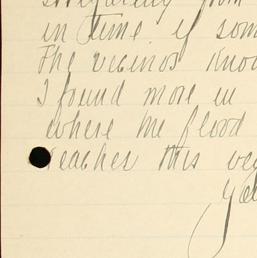 from
in time if som
The vecinos Know
I found more in
where the flood
reaches this va